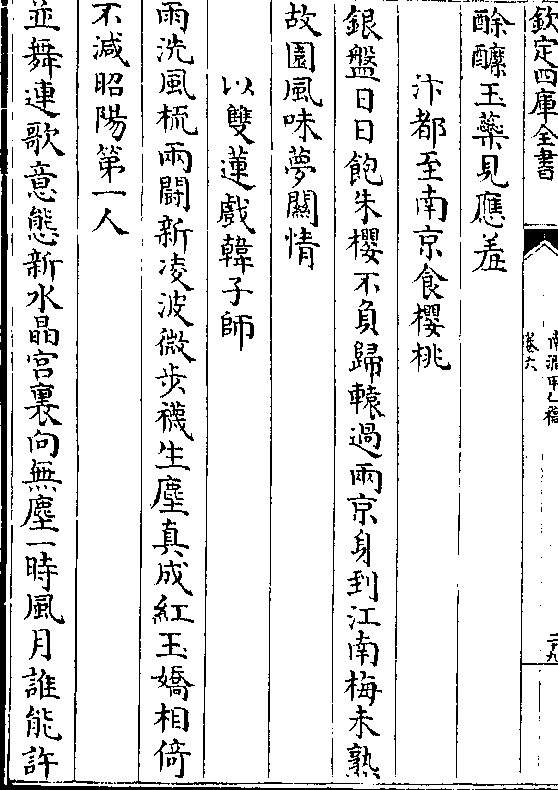 欽定四庫全書
南澗甲乙稿
卷六
二十九
酴醾玉藥見應羞
汴都至南京食櫻桃
銀盤日日飽朱櫻不負歸轅過兩京身到江南梅未熟
故園風味夢關情
以雙蓮戲韓子師
雨洗風梳兩鬬新凌波微步襪生塵真成紅玉嬌相倚
不減昭陽第一人
並舞連歌意態新水晶宫裏向無塵一時風月誰能許